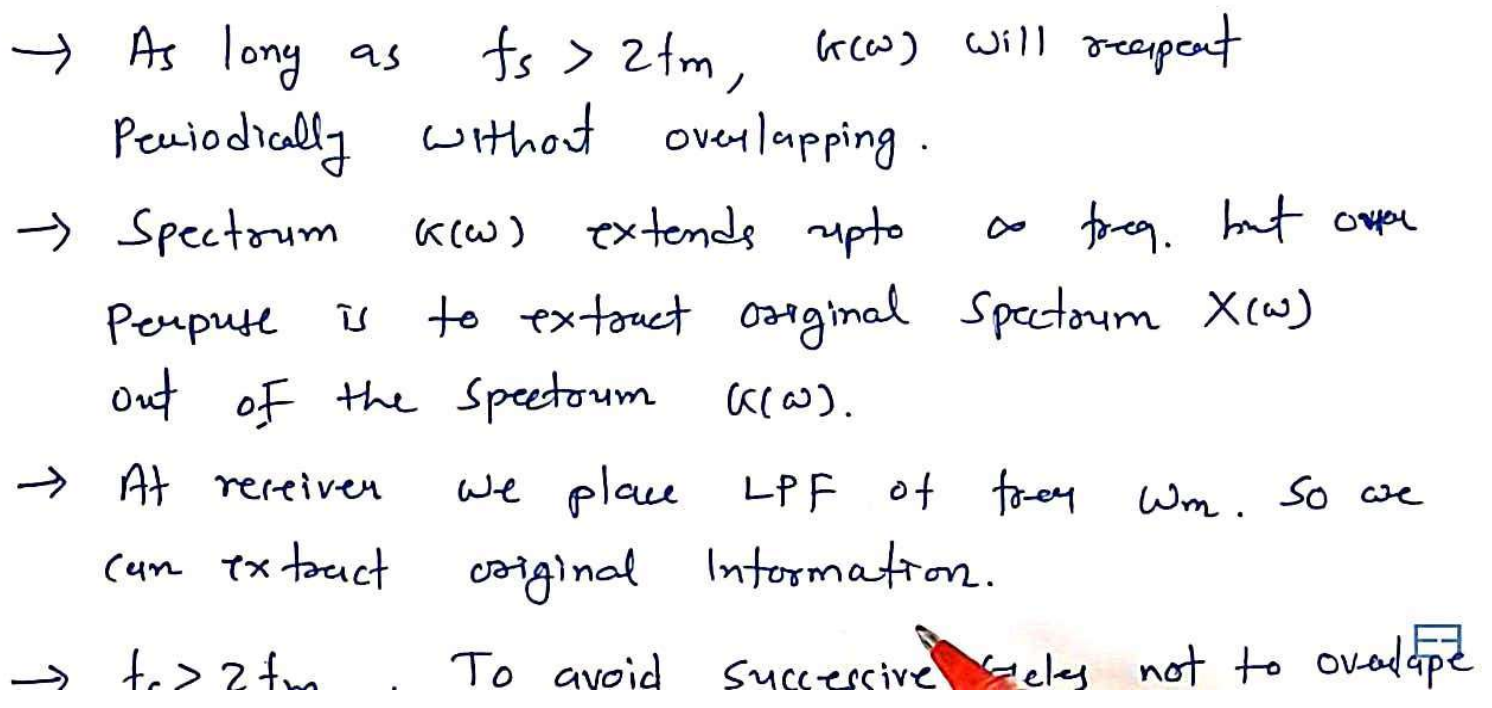 → As long as fs > 2fm, G(ω) will reapeat
Periodically without overlapping.
→ Spectrum G(ω) extends upto ∞ freq. but our
Perpuse is to extract original Spectrum X(ω)
out of the Spectrum G(ω).
→ At receiver we place LPF of freq ωm. So we
can extract original Information.
→ fs > 2fm . To avoid successive not to overlape